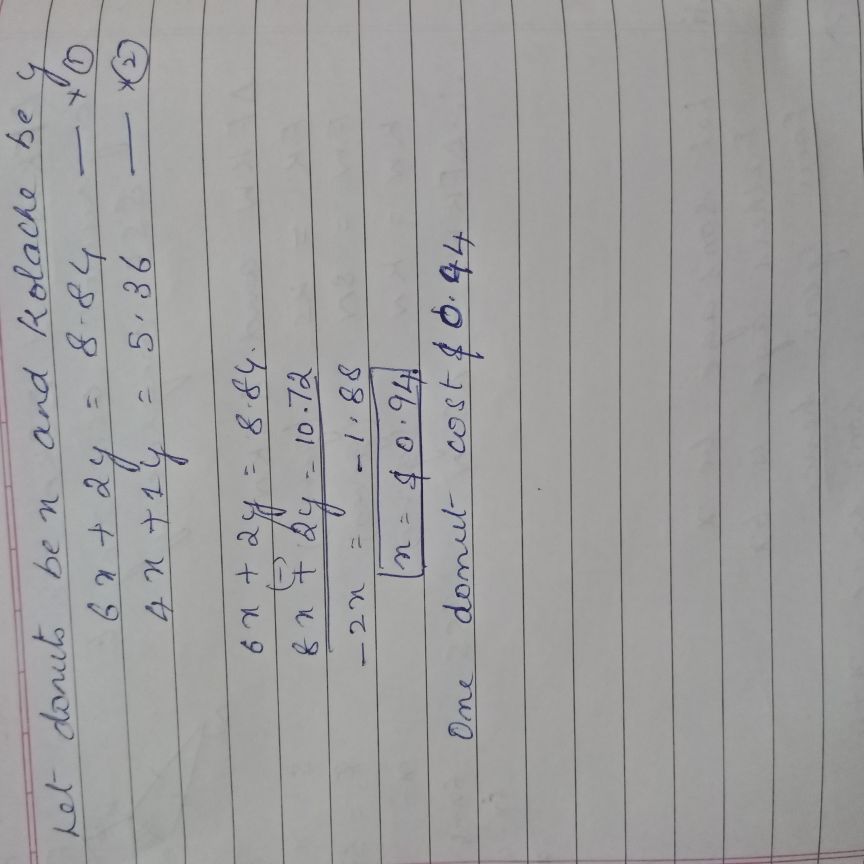 Let donuts be x and Kolache be y
6x + 2y = 8.84 — * ①
4x + 1y = 5.36 — * ②
6x + 2y = 8.84.
(-)
8x + 2y = 10.72
-2x = -1.88
x = $ 0.94
One donut cost $ 0.94